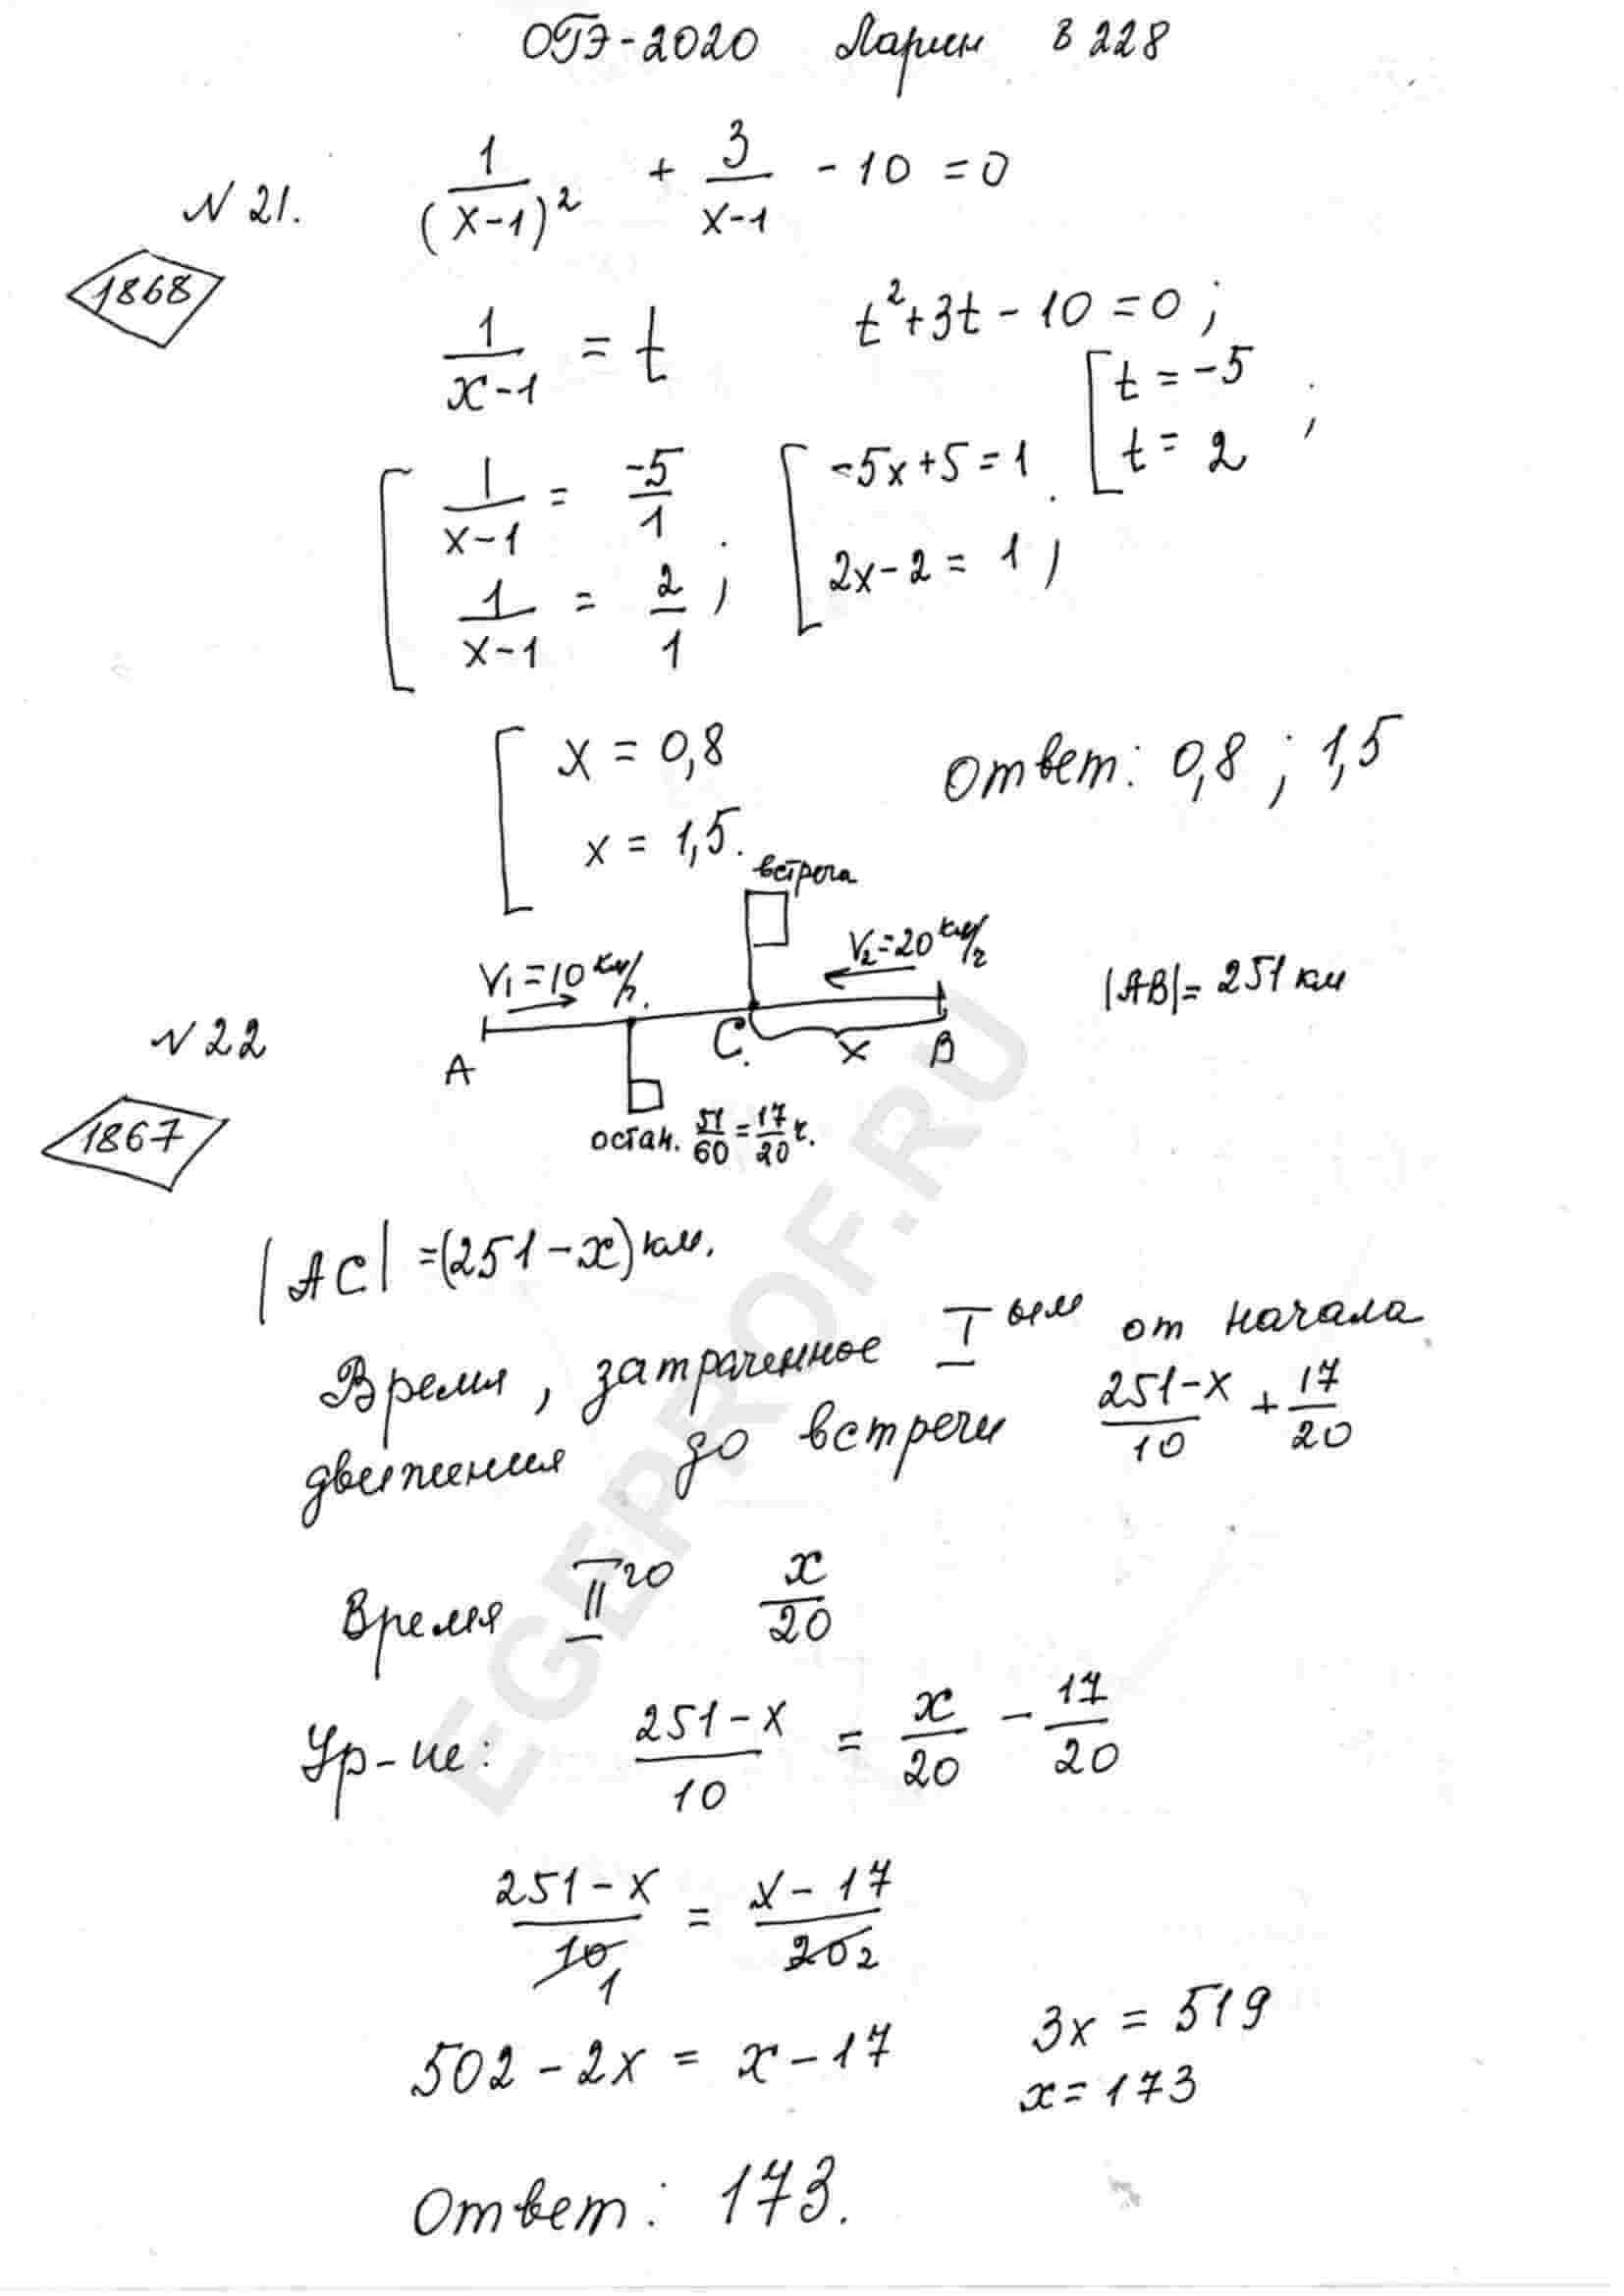 ОГЭ-2020 Ларин в 228
N 21. 1/(x-1)² + 3/(x-1) - 10 = 0
1868
1/(x-1) = t t²+3t-10=0;
[ t = -5
t = 2 ;
[ 1/(x-1) = -5/1
1/(x-1) = 2/1 ;
[ -5x+5=1
2x-2=1 ;
[ x = 0,8
x = 1,5.
Ответ: 0,8 ; 1,5
встреча
V₁=10 км/ч. V₂=20 км/ч
|AB|= 251 км
N 22
A C. x B
1867
остан. 51/60 = 17/20 ч.
|AC| =(251-x) км.
Время, затраченное I ым от начала
движения до встречи (251-x)/10 + 17/20
Время II го x/20
Ур-ие: (251-x)/10 = x/20 - 17/20
(251-x)/10 1 = (x-17)/20 2
502-2x = x-17 3x = 519
x=173
Ответ: 173.
EGEPROF.RU